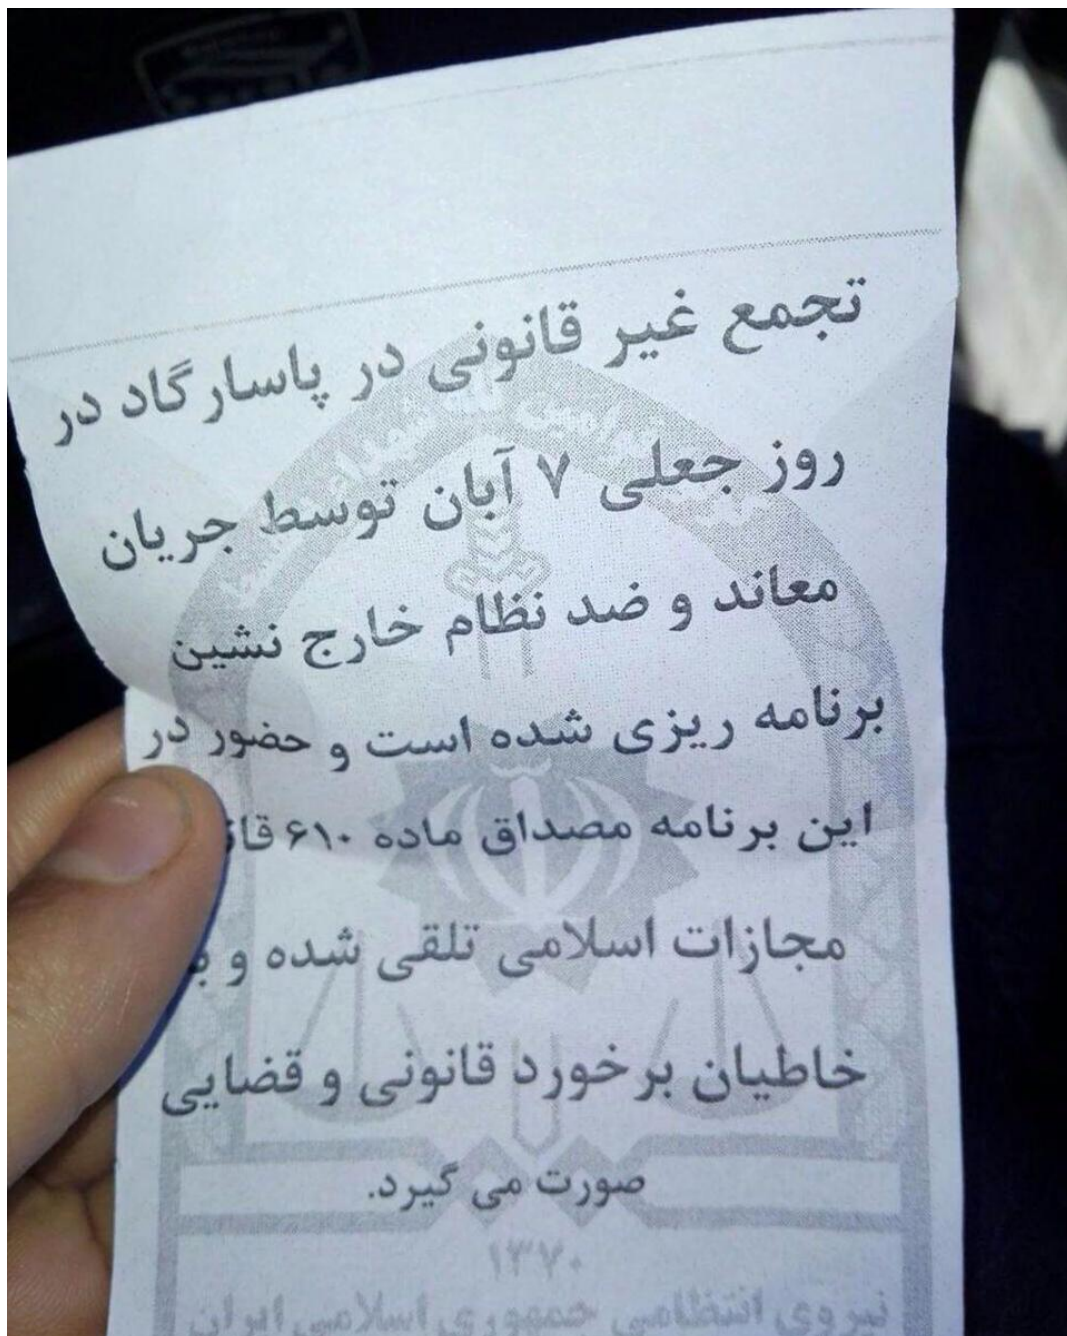 تجمع غیر قانونی در پاسارگاد در
روز جعلی ۷ آبان توسط جریان
معاند و ضد نظام خارج نشین
برنامه ریزی شده است و حضور در
این برنامه مصداق ماده ۶۱۰
مجازات اسلامی تلقی شده و
خاطیان برخورد قانونی و قضایی
صورت می گیرد.
۱۳۷۰
نیروی انتظامی جمهوری اسلامی ایران